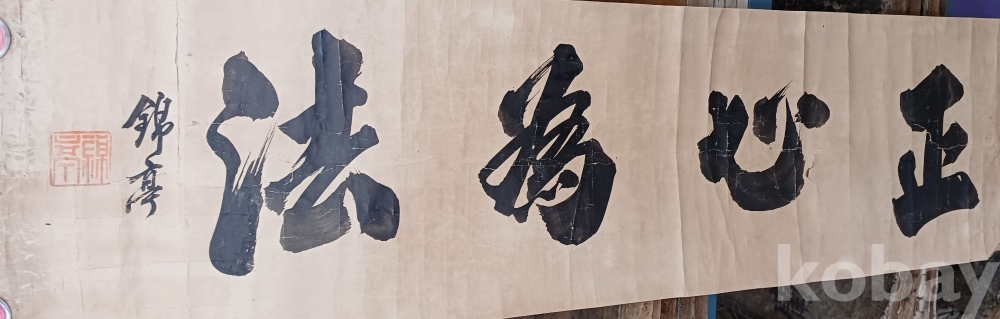 正心為法
錦亭
kobay